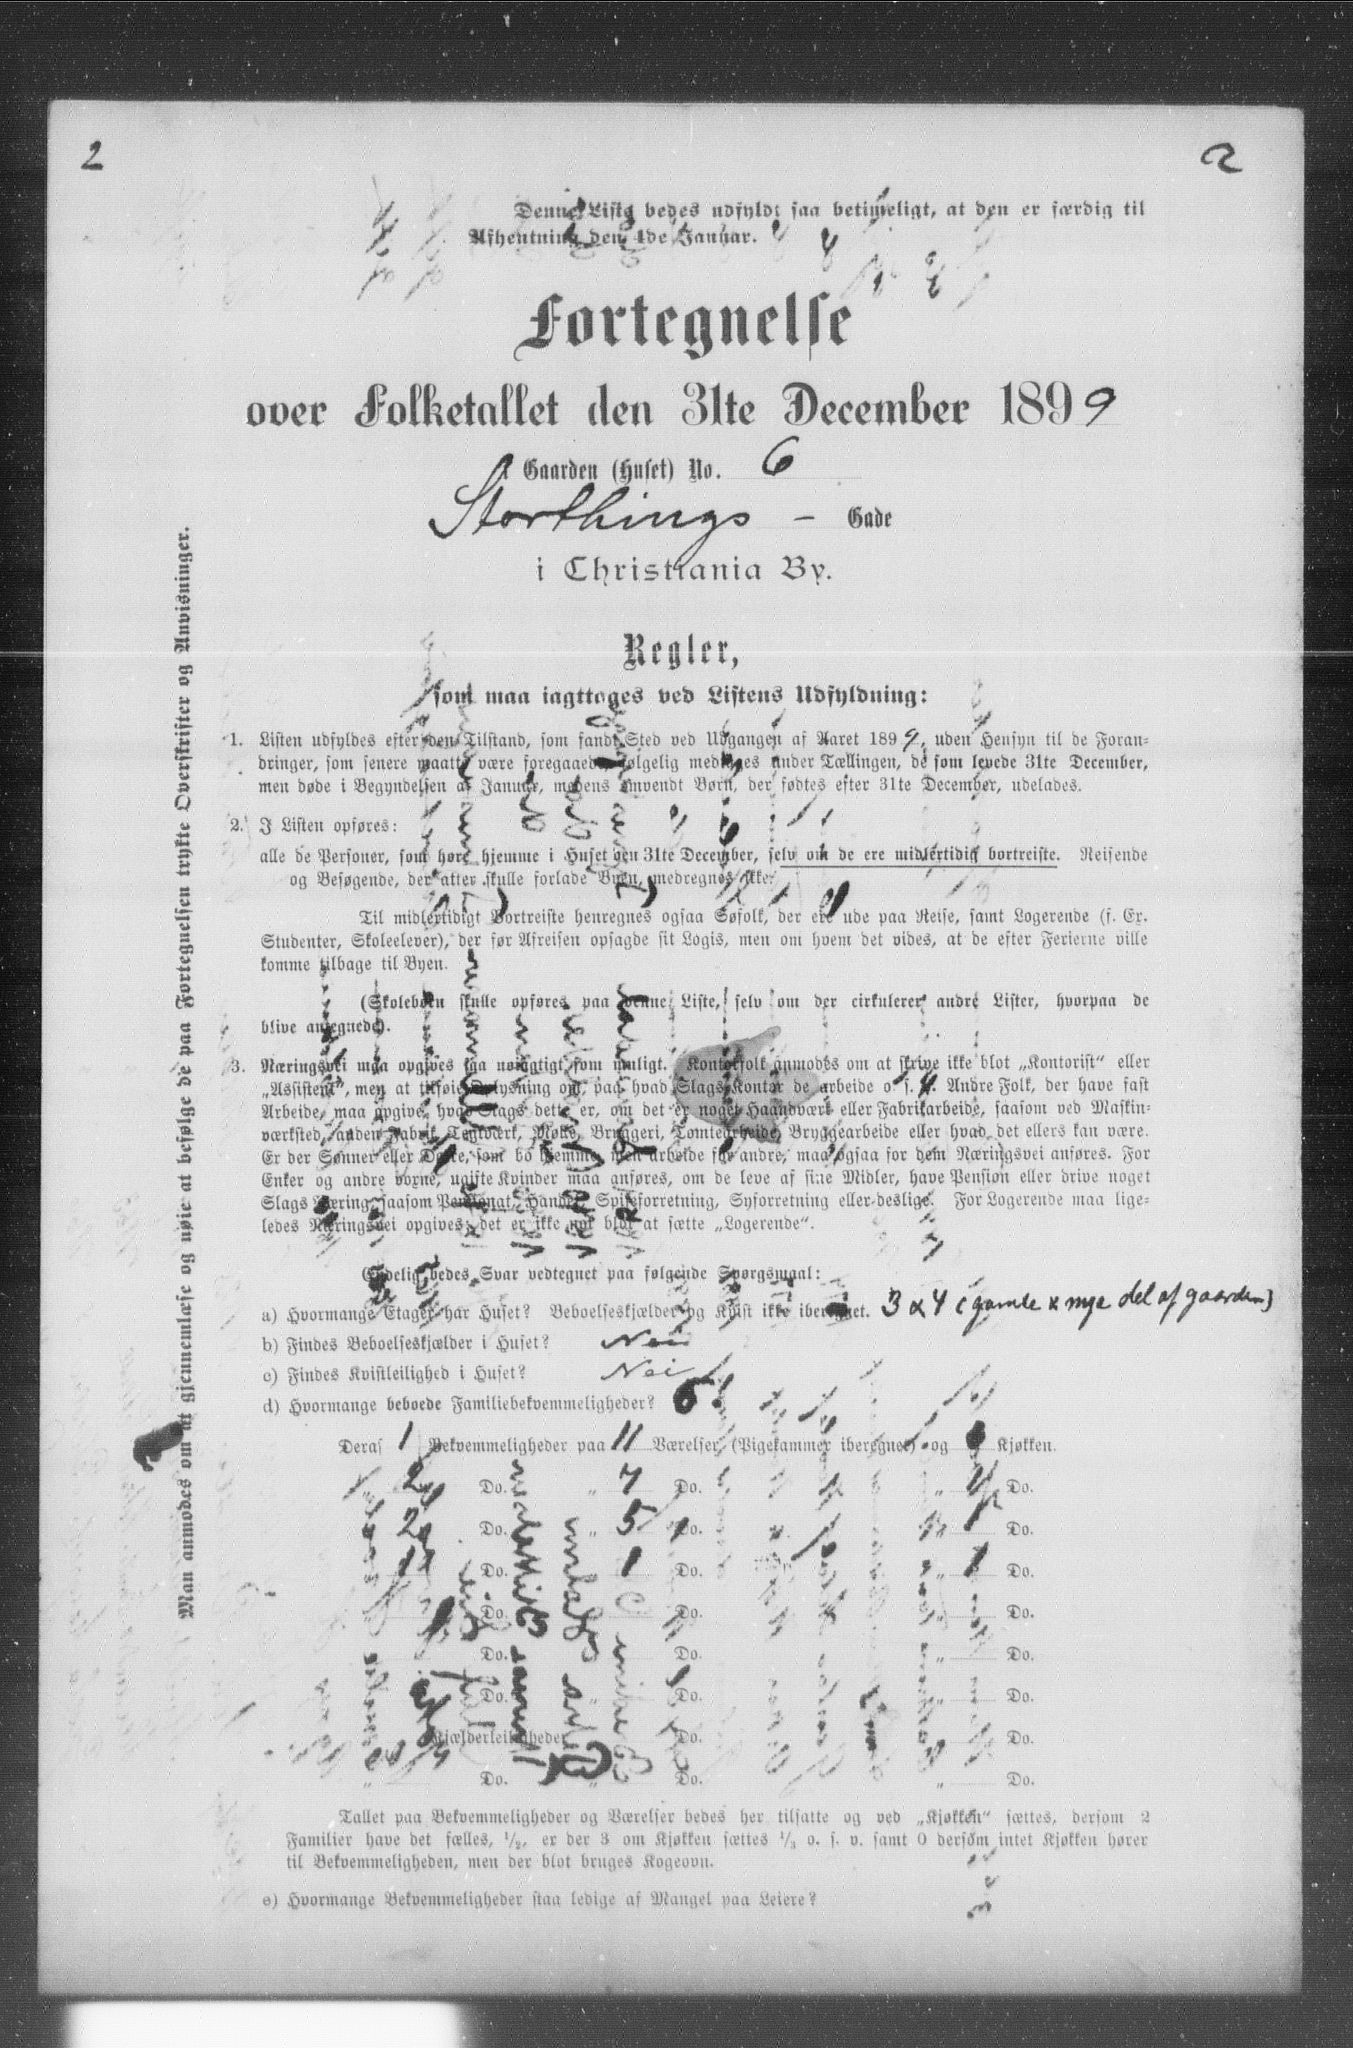 2
2
Denne Liste bedes udfyldt saa betimeligt, at den er færdig til
Afhentning den 4de Januar.
Fortegnelse
over Folketallet den 31te December 1899
i Gaarden (Huset) No. 6
Storthings - Gade
i Christiania By.
Regler,
som maa iagttages ved Listens Udfyldning:
1. Listen udfyldes efter den Tilstand, som fandt Sted ved Udgangen af Aaret 1899, uden Hensyn til de Foran-
dringer, som senere maatte være foregaaede; følgelig medtages under Tællingen, de som levede 31te December,
men døde i Begyndelsen af Januar, medens omvendt Børn, der fødtes efter 31te December, udelades.
2. I Listen opføres:
alle de Personer, som høre hjemme i Huset den 31te December, selv om de ere midlertidig bortreiste. Reisende
og Besøgende, der atter skulle forlade Byen, medregnes ikke.
Til midlertidigt Bortreiste henregnes ogsaa Søfolk, der ere ude paa Reise, samt Logerende (f. Ex.
Studenter, Skoleelever), der før Afreisen opsagde sit Logis, men om hvem det vides, at de efter Ferierne ville
komme tilbage til Byen.
(Skolebørn skulle opføres paa denne Liste, selv om der cirkulerer andre Lister, hvorpaa de
blive antegnede).
3. Næringsvei maa opgives saa nøiagtigt som muligt. Kontorfolk anmodes om at skrive ikke blot „Kontorist“ eller
„Assistent“, men at tilføie Oplysning om, paa hvad Slags Kontor de arbeide o. s. v. Andre Folk, der have fast
Arbeide, maa opgive, hvad Slags dette er, om det er noget Haandværk eller Fabrikarbeide, saasom ved Maskin-
værksted, anden Fabrik, Teglværk, Mølle, Bryggeri, Tomtearbeide, Bryggearbeide eller hvad det ellers kan være.
Er der Sønner eller Døtre, som bo hjemme, men arbeide for andre, maa ogsaa for dem Næringsvei anføres. For
Enker og andre voxne, ugifte Kvinder maa anføres, om de leve af sine Midler, have Pension eller drive noget
Slags Næring, saasom Pensionat, Handel, Spiseforretning, Syforretning eller deslige. For Logerende maa lige-
ledes Næringsvei opgives; det er ikke nok blot at sætte „Logerende“.
Endelig bedes Svar vedtegnet paa følgende Spørgsmaal:
a) Hvormange Etager har Huset? Beboelseskjælder og Kvist ikke iberegnet. 3 & 4 (gamle & nye del af gaarden)
b) Findes Beboelseskjælder i Huset? Nei
c) Findes Kvistleilighed i Huset? Nei
d) Hvormange beboede Familiebekvemmeligheder? 6.
Deraf 1 Bekvemmeligheder paa 11 Værelser (Pigekammer iberegnet) og Kjøkken.
„ 2 Do. „ 7 Do. „ Do.
„ 2 Do. „ 5 Do. „ 1 Do.
„ 1 Do. „ 1 Do. „ 1 Do.
„ Do. „ Do. „ Do.
„ Do. „ Do. „ Do.
„ Do. „ Do. „ Do.
Kjælderleiligheder „ Do. „ Do.
„ Do. „ Do. „ Do.
Tallet paa Bekvemmeligheder og Værelser bedes her tilsatte og ved „Kjøkken“ sættes, dersom 2
Familier have det fælles, 1/2, er der 3 om Kjøkken sættes 1/3 o. s. v. samt 0 dersom intet Kjøkken hører
til Bekvemmeligheden, men der blot bruges Kogeovn.
e) Hvormange Bekvemmeligheder staa ledige af Mangel paa Leiere?
Man anmodes om at gjennemlæse og nøie at befølge de paa Fortegnelsen trykte Overskrifter og Anvisninger.